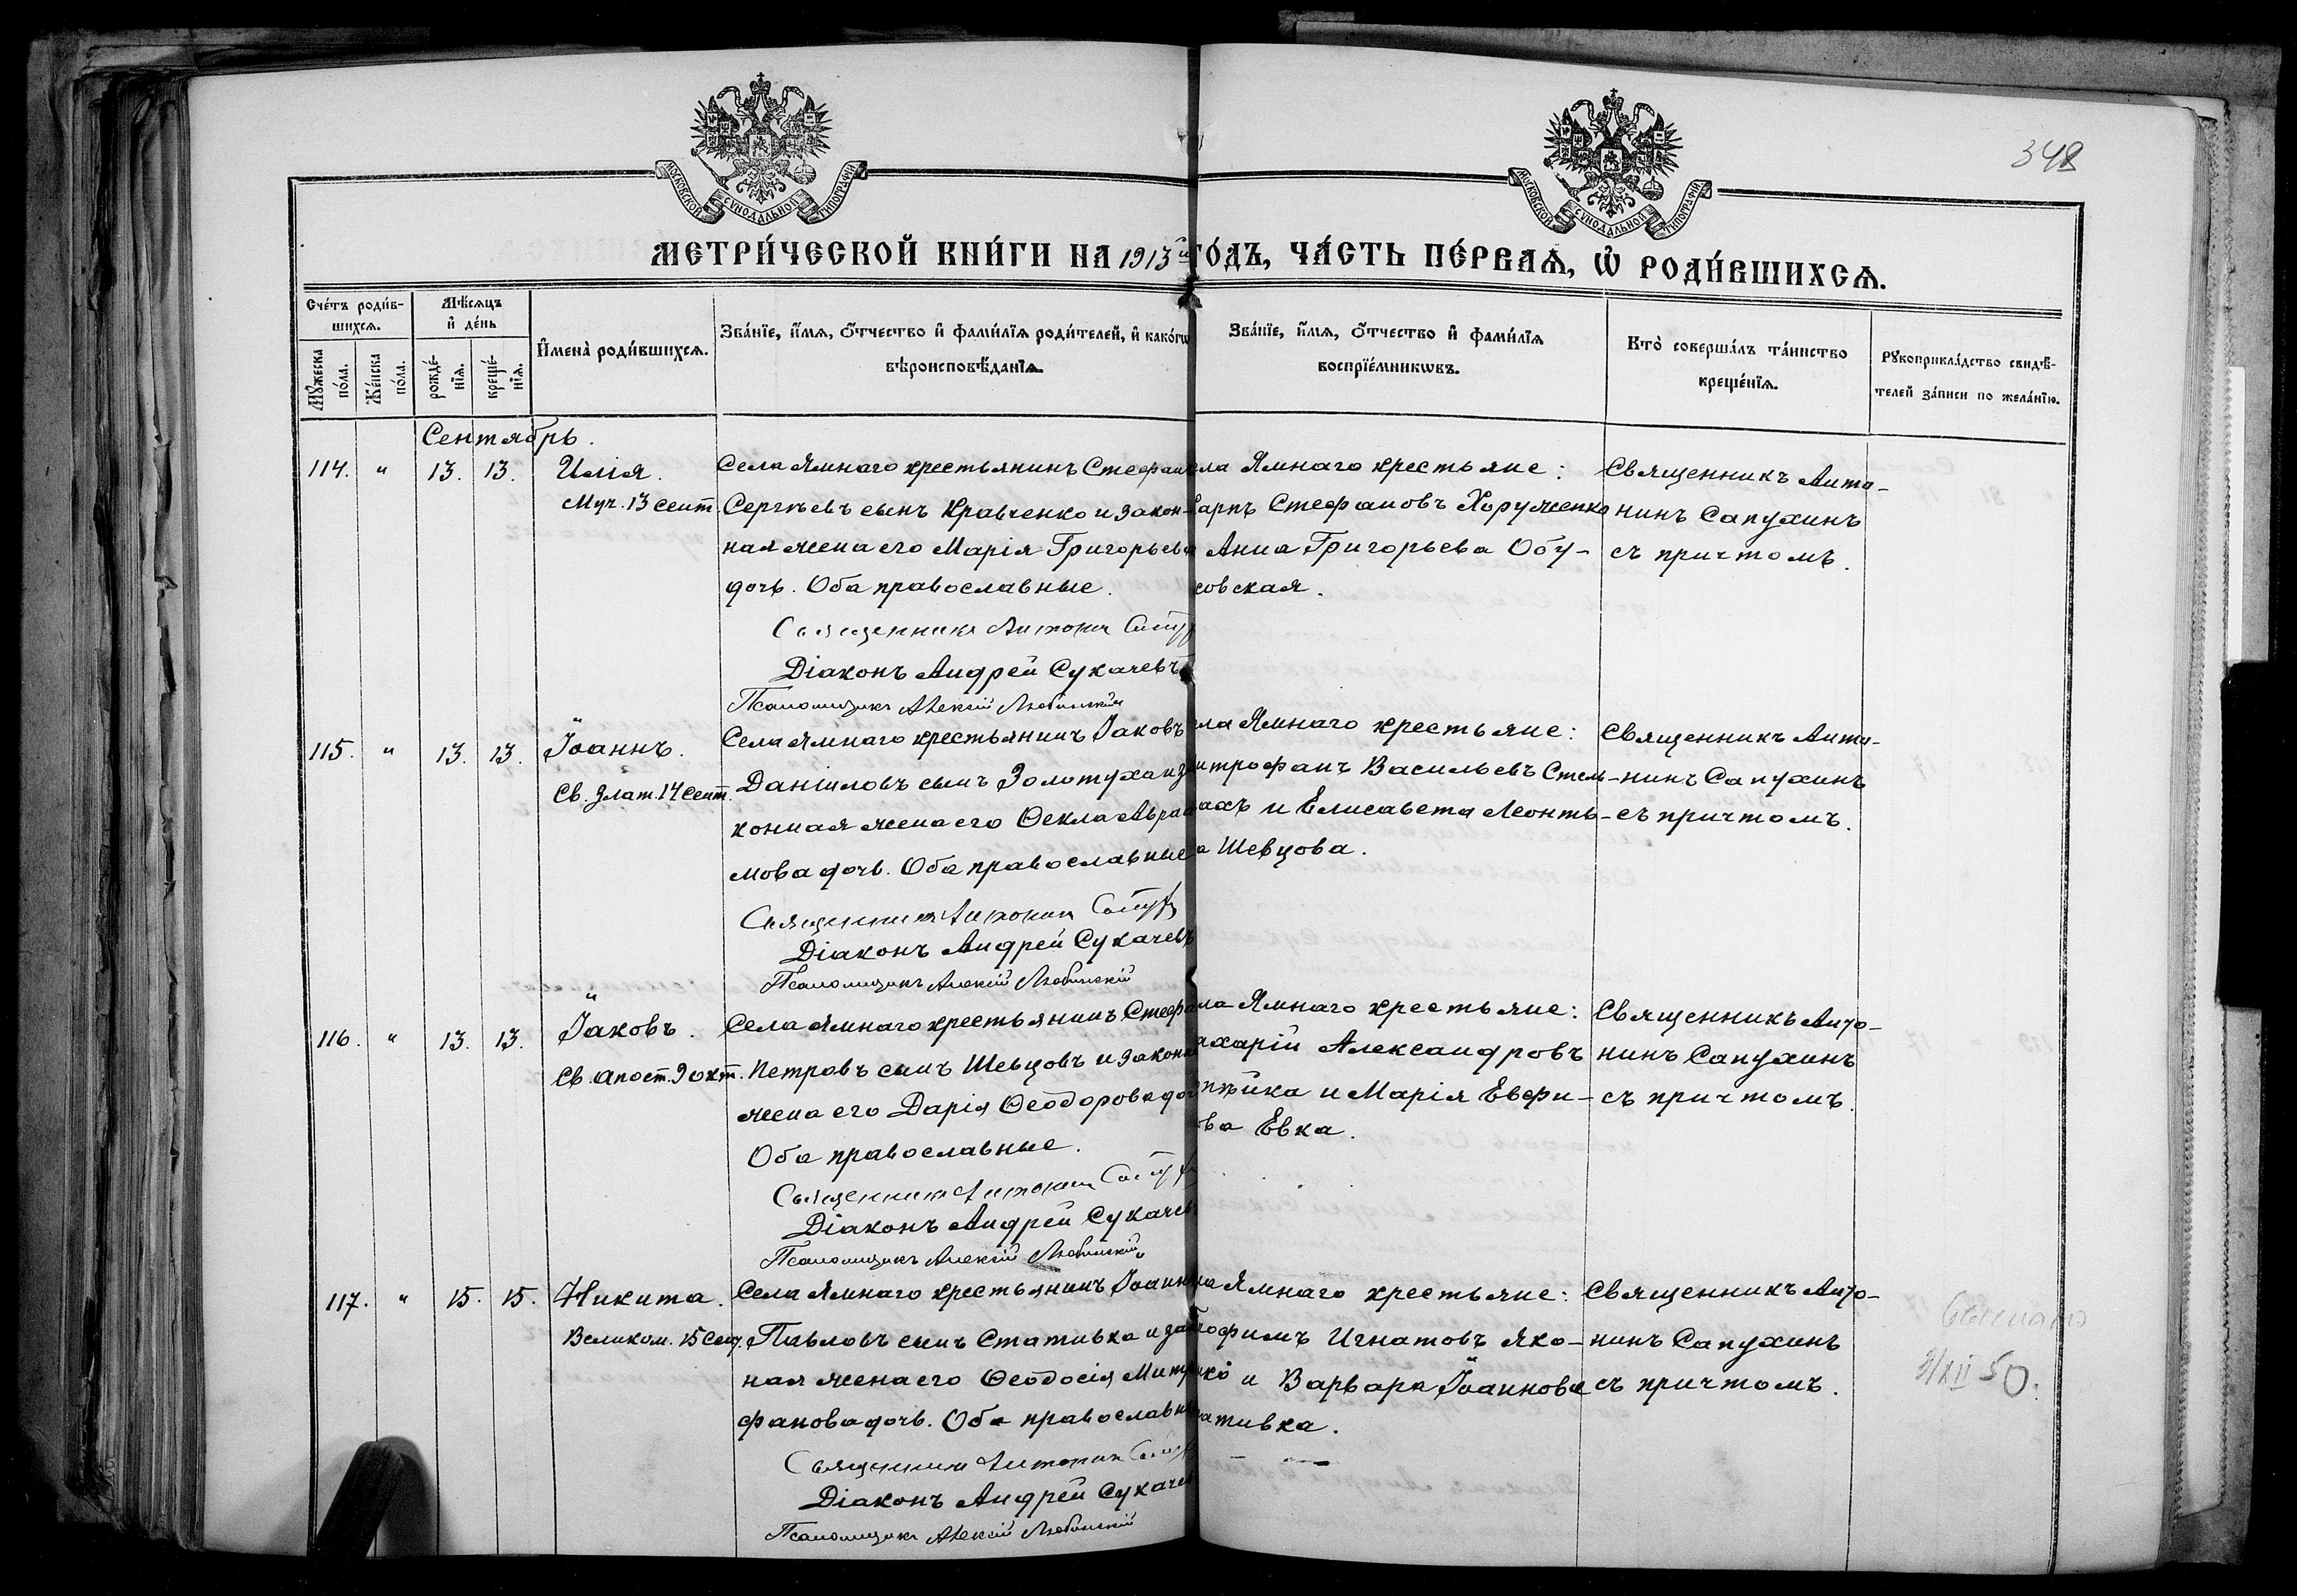 348
МОСКОВСКОЙ СѴНОДАЛЬНОЙ ТИПОГРАФІИ
МОСКОВСКОЙ СѴНОДАЛЬНОЙ ТИПОГРАФІИ
МЕТРИ́ЧЕСКОЙ КНИ́ГИ НА 1913й ГО́ДЪ, ЧА́СТЬ ПЕ́РВАѦ, Ѡ҆ РОДИ́ВШИХСѦ.
Сче́тъ роди́в-
шихсѧ.
Мѣ́сѧцъ
и҆ де́нь
Мꙋ́жеска
по́ла.
Же́нска
по́ла.
рожде́-
нїѧ.
креще́-
нїѧ.
И҆мена̀ роди́вшихсѧ.
Зва́нїе, и҆́мѧ, ѻ҆́тчество и҆ фами́лїѧ роди́телей, и҆ како́гѡ
вѣроисповѣ́данїѧ.
Зва́нїе, и҆́мѧ, ѻ҆́тчество и҆ фами́лїѧ
воспрїе́мникѡвъ.
Кто̀ соверша́лъ та́инство
креще́нїѧ.
Рꙋкоприкла́дство свидѣ́-
телей за́писи по жела́нїю.
Сентябрь.
114. " 13. 13. Илія.
Муч. 13 сент.
Села Ямнаго крестьянинъ Стефан
Сергѣевъ сынъ Кравченко и закон-
ная жена его Марія Григорьева
дочь. Оба православные.
Священникъ Антонин
Діаконъ Андрей Сукачевъ
Псаломщикъ Алексій Любинскій
ла Ямнаго крестьяне:
арпъ Стефановъ Хоруженко
Анна Григорьева Обу-
ховская.
Священникъ Анто-
нинъ Сапухинъ
съ причтомъ.
115. " 13. 13. Іоаннъ.
Св. Злат. 14 сент.
Села Ямнаго крестьянинъ Іаковъ
Даніиловъ сынъ Золотуха и за
конная жена его Ѳекла Авраа
мова дочь. Оба православные
Священникъ Антонин
Діаконъ Андрей Сукачевъ
Псаломщикъ Алексій Любинскій
ла Ямнаго крестьяне:
итрофанъ Васильевъ Стель-
ахъ и Елисавета Леонть-
а Шевцова.
Священникъ Анто-
нинъ Сапухинъ
съ причтомъ.
116. " 13. 13. Іаковъ.
Св. апост. 9 окт.
Села Ямнаго крестьянинъ Стефа
Петровъ сынъ Шевцовъ и законн
жена его Дарія Ѳеодорова доч
Оба православные.
Священникъ Антонин
Діаконъ Андрей Сукачев
Псаломщикъ Алексій Любинскій
ла Ямнаго крестьяне:
ахарій Александровъ
пѣйка и Марія Евфи-
ова Евка.
Священникъ Анто-
нинъ Сапухинъ
съ причтомъ.
117. " 15. 15. Никита.
Великом. 15 сент.
Села Ямнаго крестьянинъ Іоанн
Павловъ сынъ Стативка и зак
ная жена его Ѳеодосія Митр
фанова дочь. Оба православн
Священникъ Антонин
Діаконъ Андрей Сукачев
Псаломщикъ Алексій Любинскій
ла Ямнаго крестьяне:
рофимъ Игнатовъ Яко-
нко и Варвара Іоаннова
ативка.
Священникъ Анто-
нинъ Сапухинъ
съ причтомъ.
XII 50.